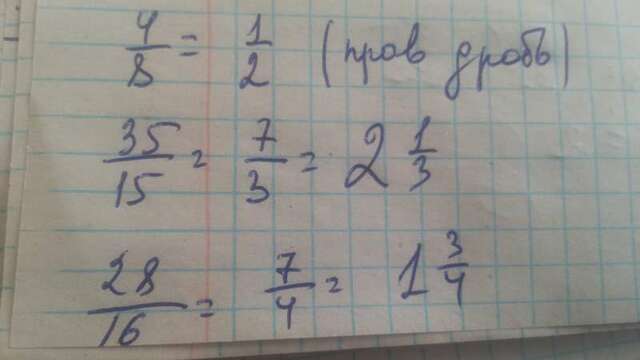 4/8 = 1/2 (прав дробь)
35/15 = 7/3 = 2 1/3
28/16 = 7/4 = 1 3/4